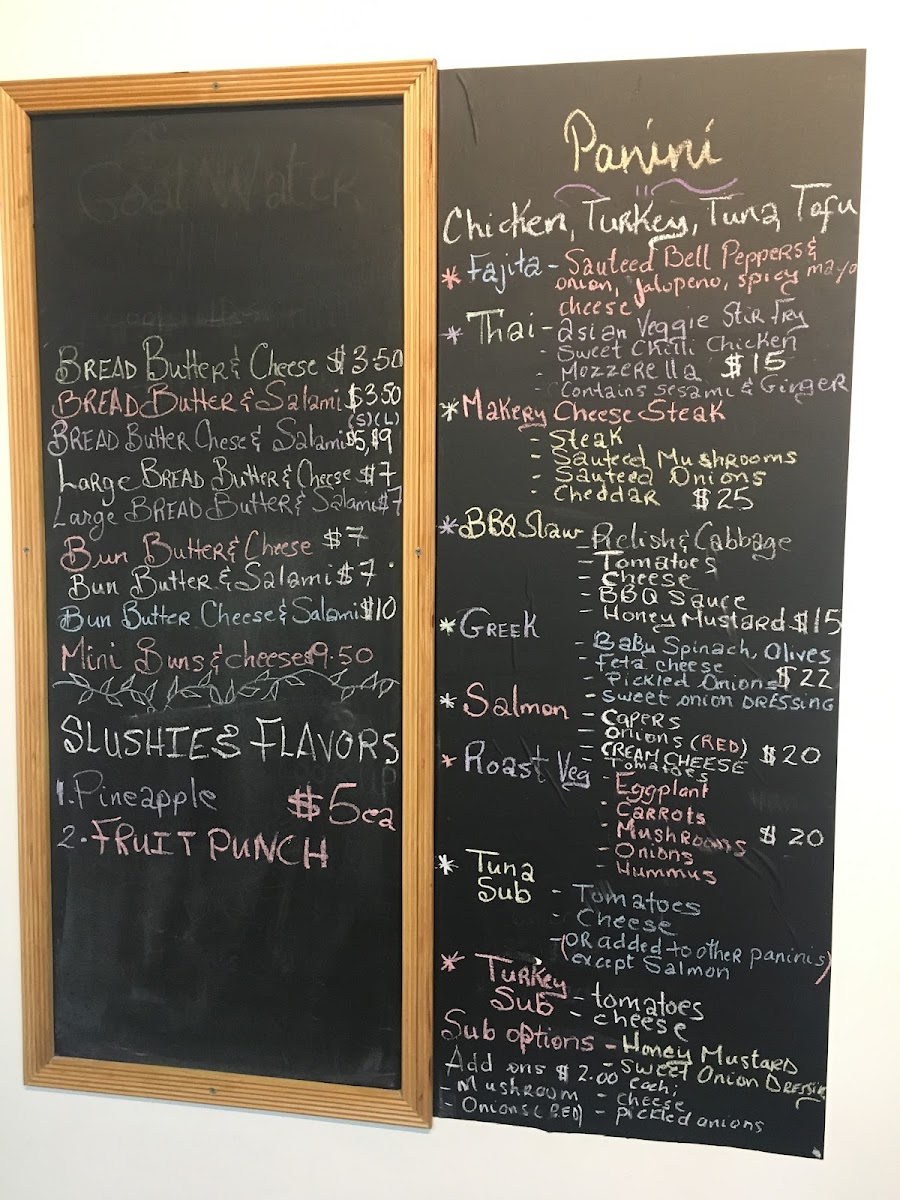 Goat Water
BREAD Butter & Cheese $3.50
BREAD Butter & Salami $3.50
(S)(L)
BREAD Butter Chese & Salami $5, $9
Large BREAD Butter & Cheese $7
Large BREAD Butter & Salami $7
Bun Butter & Cheese $7
Bun Butter & Salami $7
Bun Butter Cheese & Salami $10
Mini Buns & cheeses 9.50
SLUSHIES FLAVORS
1. Pineapple
$5 ea
2. FRUIT PUNCH
Panini
Chicken, Turkey, Tuna, Tofu
* Fajita - Sauteed Bell Peppers &
onion, jalopeno, spicy mayo
cheese
* Thai - asian Veggie Stir Fry
- Sweet Chilli Chicken
- Mozzerella $15
- Contains sesami & Ginger
* Makery Cheese Steak
- Steak
- Sauteed Mushrooms
- Sauteed Onions
- Cheddar $25
* BBQ Slaw - Relish & Cabbage
- Tomatoes
- Cheese
- BBQ Sauce
- Honey Mustard $15
* GREEK
- Baby Spinach, Olives
- Feta cheese
- Pickled Onions $22
- Sweet onion DRESSING
* Salmon - Capers
- Onions (RED)
- CREAM CHEESE $20
- Tomatoes
* Roast Veg - Eggplant
- Carrots
- Mushrooms $20
- Onions
- Hummus
* Tuna
Sub - Tomatoes
- Cheese
- (OR added to other paninis)
except Salmon
* Turkey
Sub - tomatoes
- cheese
Sub options - Honey Mustard
- Sweet Onion Dressing
Add ons $2.00 each;
- Mushroom - cheese
- Onions (RED) - pickled onions